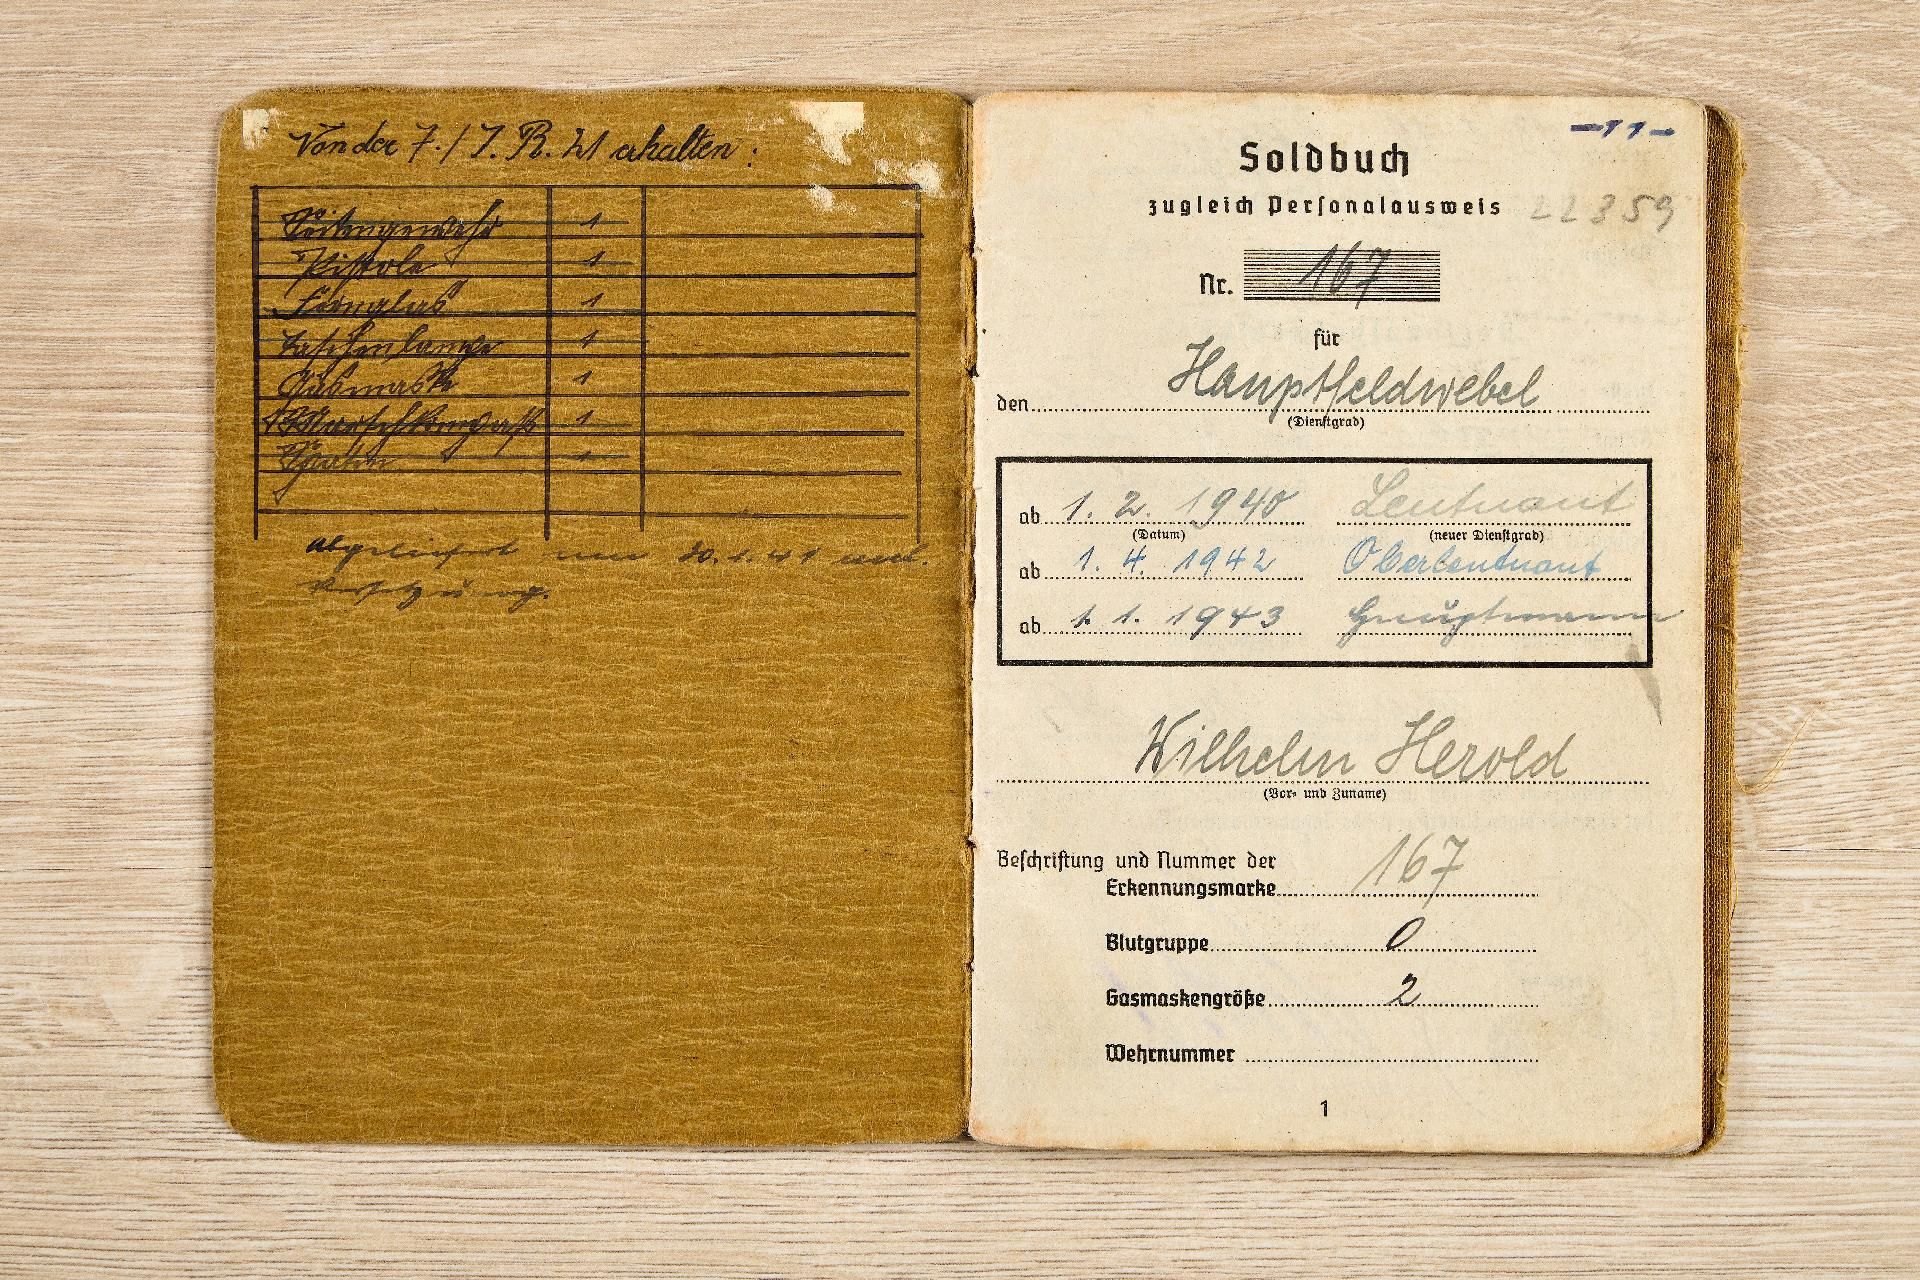 Von der 7./I.R. 21 erhalten:
Seitengewehr 1
Pistole 1
Fernglas 1
Taschenlampe 1
Gasmaske 1
1 Marschkompaß 1
Spaten 1
abgeliefert am 20.1.41 und.
Versetzung.
-11-
Soldbuch
zugleich Personalausweis
22359
Nr. 167
für
den Hauptfeldwebel
(Dienstgrad)
ab 1. 2. 1940 Leutnant
(Datum) (neuer Dienstgrad)
ab 1. 4. 1942 Oberleutnant
ab 1. 1. 1943 Hauptmann
Wilhelm Herold
(Vor- und Zuname)
Beschriftung und Nummer der
Erkennungsmarke 167
Blutgruppe 0
Gasmaskengröße 2
Wehrnummer
1